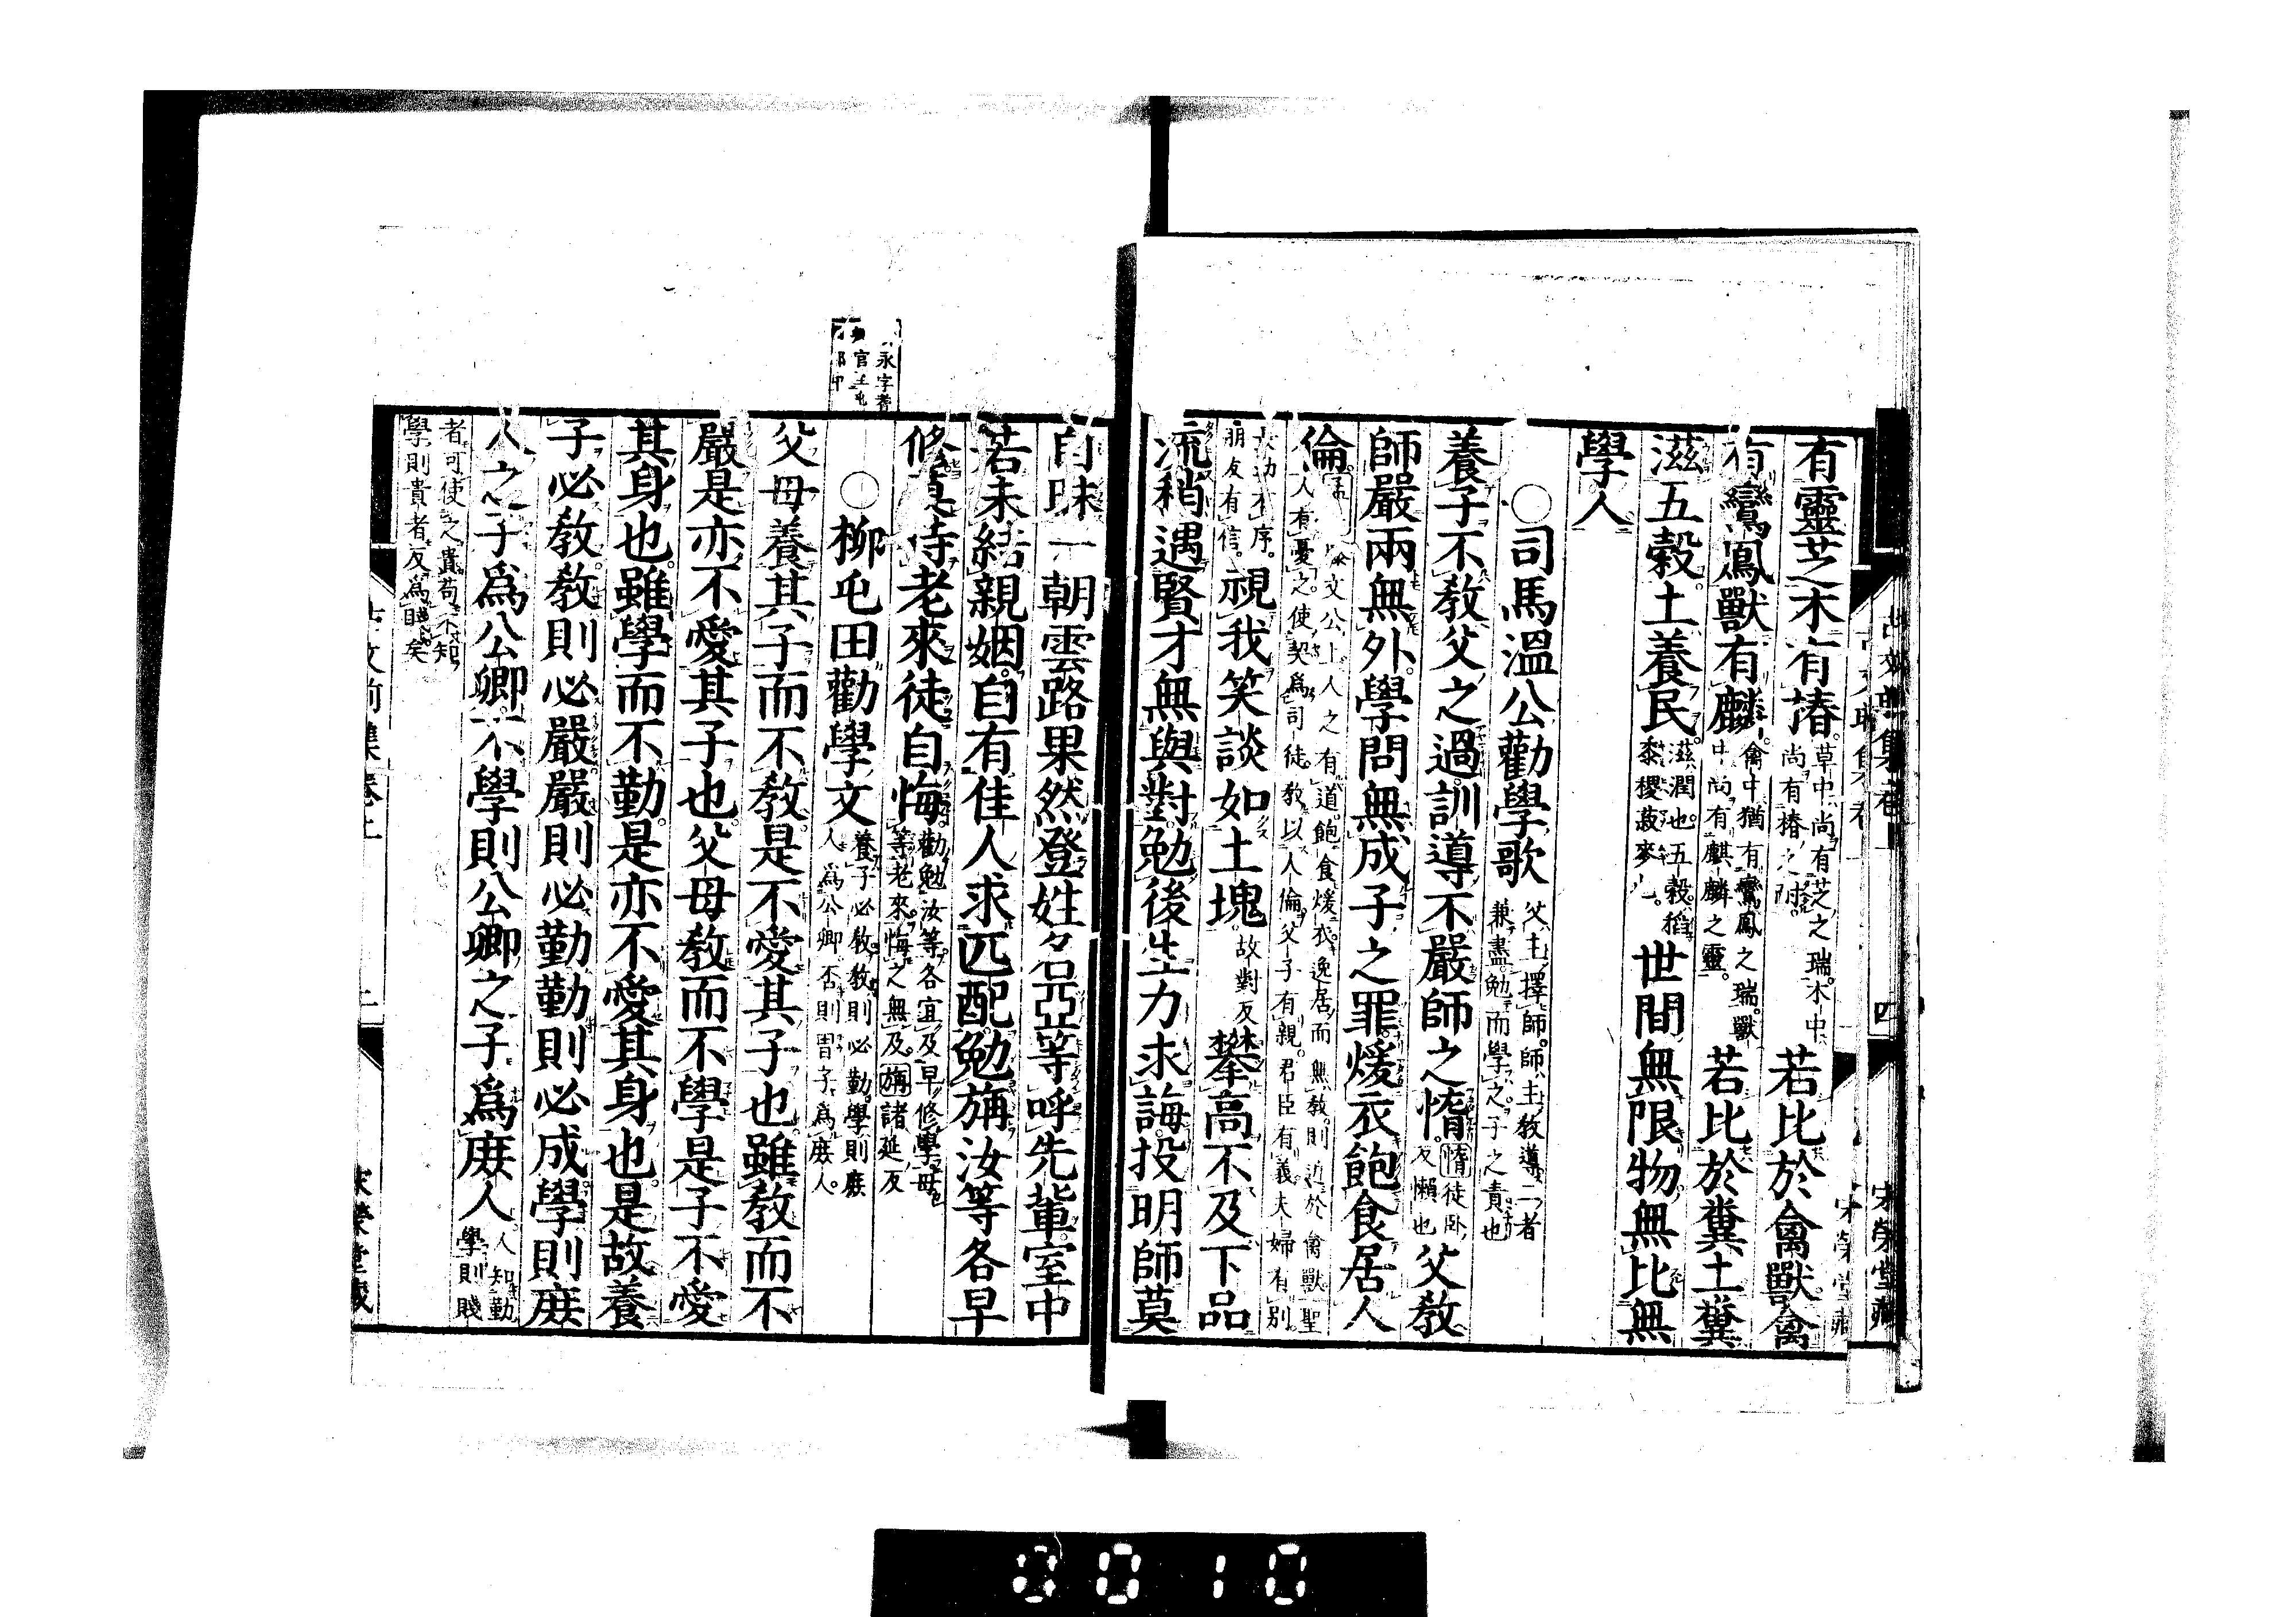 有靈芝木有椿草中尚有芝之瑞木中尚有椿之若比於禽獸禽
有鸞鳳獸有麟禽中猶有鸞鳳之瑞獸中尚有麒麟之靈若比於糞土糞
滋五穀土養民滋潤也五穀稻黍稷菽麥世間無限物無比無
學人
○司馬溫公勸學歌父主擇師師主教導二者兼盡勉而學之子之責也
養子不教父之過訓導不嚴師之惰惰徒臥反懶也父教
師嚴兩無外學問無成子之罪煖衣飽食居人
倫孟文公上人之有道飽食煖衣逸居而無教則近於禽獸聖人有憂之使契為司徒教以人倫父子有親君臣有義夫婦有別
長幼有序朋友有信視我笑談如土塊故對反攀高不及下品
流稍遇賢才無與對勉後生力求誨投明師莫
自昧一朝雲路果然登姓名亞等呼先輩室中
若未結親姻自有佳人求匹配勉旃汝等各早
修莫待老來徒自悔勸勉汝等各宜及早修學毋等老來悔之無及旃諸延反
永字耆
官至屯
○柳屯田勸學文養子必教教則必勤學則庶人為公卿否則冑子為庶人
父母養其子而不教是不愛其子也雖教而不
嚴是亦不愛其子也父母教而不學是子不愛
其身也雖學而不勤是亦不愛其身也是故養
子必教教則必嚴嚴則必勤勤則必成學則庶
人之子為公卿不學則公卿之子為庶人人知勤學則賤
者可使之貴苟不知學則貴者反為賤矣